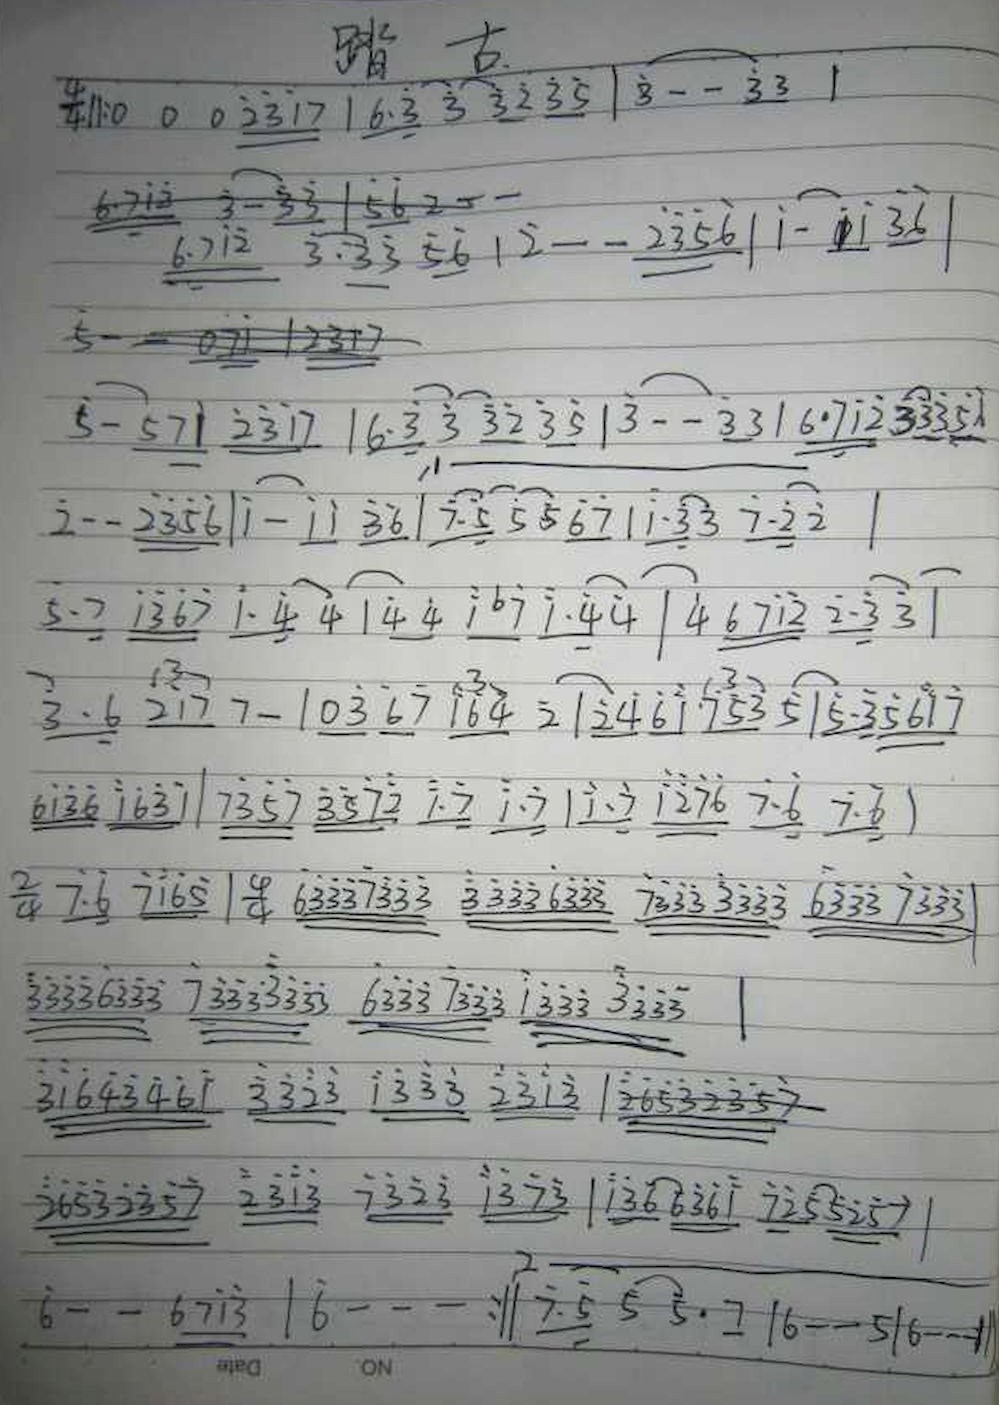 踏古
4/4 ‖: 0 0 0 2̇3̇1̇7 | 6·3̇ 3̇ 3̇2̇ 3̇5̇ | 3̇ - - 3̇3̇ |
6·71̇2̇ 3̇ - 3̇3̇ | 5̇6̇ 2̇ - -
6·71̇2̇ 3̇·3̇3̇ 5̇6̇ | 2̇ - - - 2̇3̇5̇6̇ | 1̇ - 1̇1̇ 3̇6̇ |
5̇ - - 071̇ | 2̇3̇1̇7
5̇ - 571̇ 2̇3̇1̇7 | 6·3̇ 3̇ 3̇2̇ 3̇5̇ | 3̇ - - 3̇3 | 6·71̇2̇ 3̇3̇3̇5̇
2̇ - - 2̇3̇5̇6̇ | 1̇ - 1̇1̇ 3̇6̇ | 7̇·5̇ 5̇ 5̇ 6̇7̇ | 1̇·3̇3̇ 7·2̇2̇ |
5·7 1̇3̇67 1̇·4̇ 4 | 4̇4̇ 1̇67 1̇·4̇4̇ | 4 6 71̇2̇ 2̇·3̇ 3̇ |
3·6 2̇1̇7 7 - | 03̇ 6̇7 1̇64 2̇ | 2̇4 61̇ 753 5 | 5·3561̇7
61̇3̇6 1̇63̇1̇ | 73̇5̇7 3̇572̇ 1̇·7 1̇·7 | 1̇·7 1̇2̇76 7·6 7·6 |
2/4 7·6 7165 | 4/4 63337333 33336333 73333333 63337333 |
33336333 73333333 63337333 13333333 |
3̇1̇643461̇ 3̇3̇2̇3̇ 1̇3̇3̇3̇ 2̇3̇1̇3̇ | 26532357
26532357 2̇3̇1̇3̇ 73̇2̇3̇ 1̇3̇73̇ | 1̇3̇66361̇ 7255257 |
6̇ - - 671̇3̇ | 6̇ - - - :‖ 2 7·5 5 5·7 | 6 - - - 5 | 6 - - - ‖
Date NO.